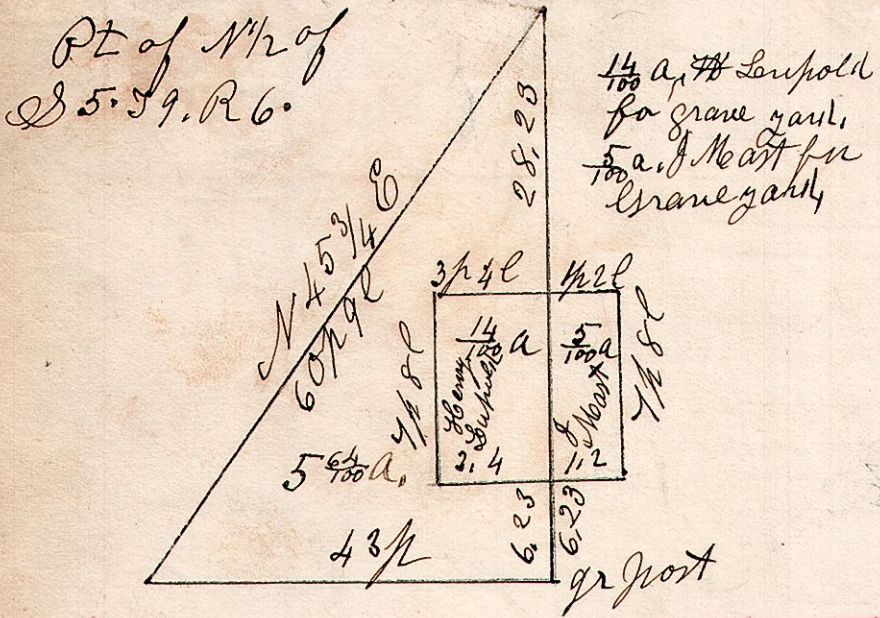 Pt of N 1/2 of
S 5. T 9. R 6.
14/100 a, H Leupold
for grave yard.
5/100 a. J Mast for
Grave yard,
28.23
N 45 3/4 E
60p 9l
3p 4l
1p 2l
7p 8l
14/100 a
Henry
Leupold
3.4
5/100 a
J Mast
1.2
7p 8l
5 64/100 a.
43p
6.23
6.23
gr post